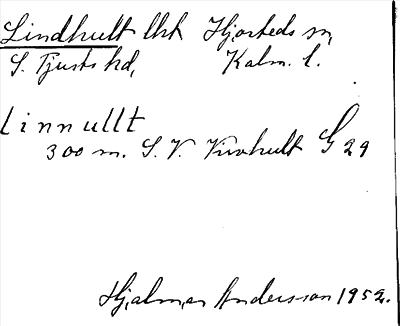 Lindhult lht Hjorteds sn,
S. Tjusts hd, Kalm. l.
linnullt
300 m. S. V. Kivhult G 29
Hjalmar Andersson 1952.